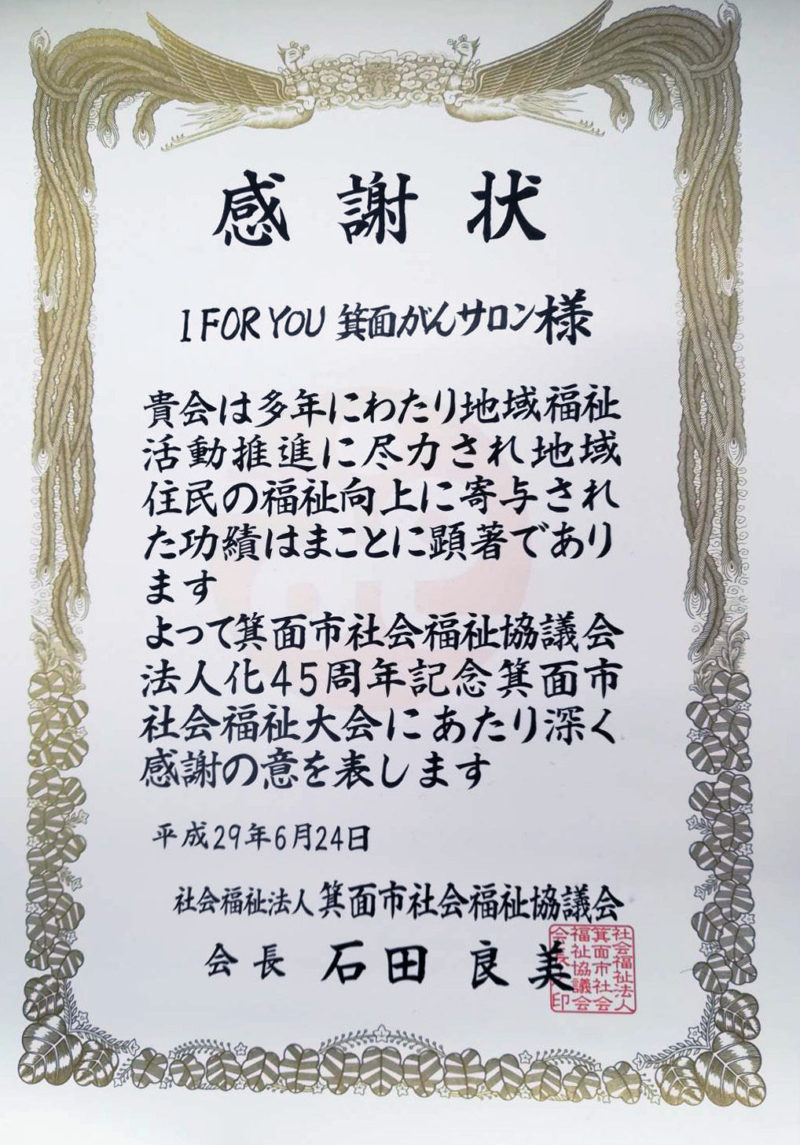 感謝状
I FOR YOU 箕面がんサロン様
貴会は多年にわたり地域福祉
活動推進に尽力され地域
住民の福祉向上に寄与され
た功績はまことに顕著であり
ます
よって箕面市社会福祉協議会
法人化45周年記念箕面市
社会福祉大会にあたり深く
感謝の意を表します
平成29年6月24日
社会福祉法人箕面市社会福祉協議会
会長 石田良美
社会福祉法人
箕面市社会
福祉協議会
会長印